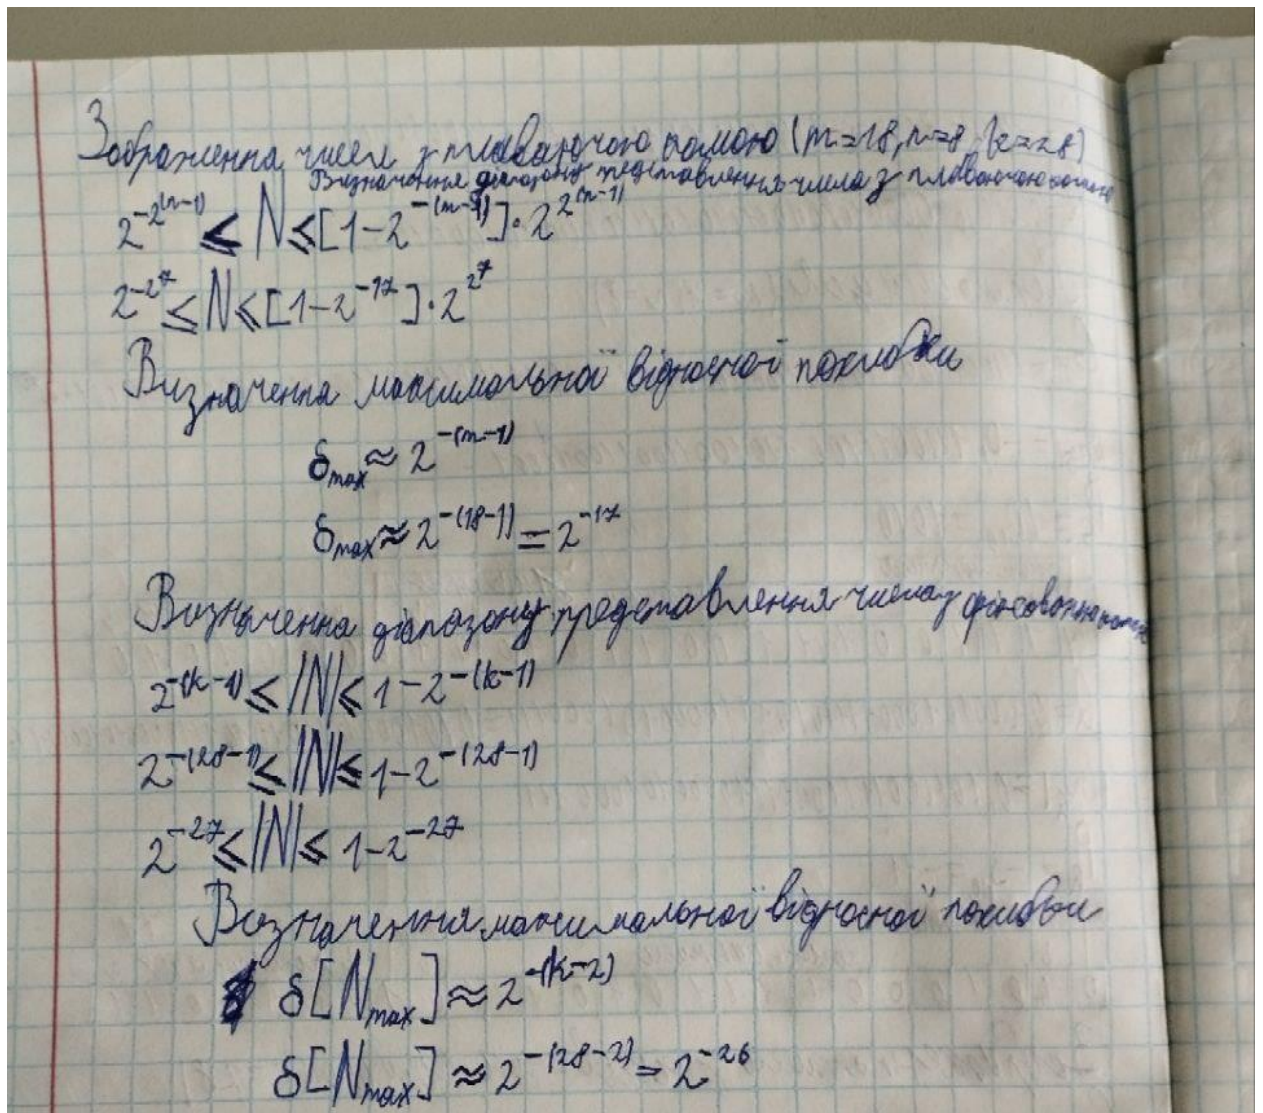 Зображення чисел з плаваючою комою (m=18, n=8, k=28)
Визначення діапазону представлення числа з плаваючою комою
2^-2^(n-1) ≤ N ≤ [1-2^-(m-1)]·2^2^(n-1)
2^-2^7 ≤ N ≤ [1-2^-17]·2^2^7
Визначення максимальної відносної похибки
δmax ≈ 2^-(m-1)
δmax ≈ 2^-(18-1) = 2^-17
Визначення діапазону представлення числа з фіксованною комою
2^-(k-1) ≤ |N| ≤ 1-2^-(k-1)
2^-(28-1) ≤ |N| ≤ 1-2^-(28-1)
2^-27 ≤ |N| ≤ 1-2^-27
Визначення максимальної відносної похибки
δ[Nmax] ≈ 2^-(k-2)
δ[Nmax] ≈ 2^-(28-2) = 2^-26